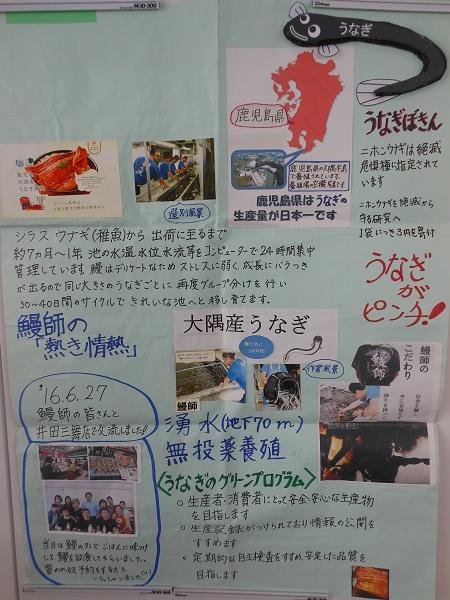 うなぎ
鹿児島県
鹿児島県の大隅半島
で養殖されています。
鹿児島県はうなぎの
生産量が日本一です
選別風景
うなぎぼきん
ニホンウナギは絶滅
危惧種に指定されて
います
ニホンウナギを絶滅から
守る研究へ
1袋につき3円を寄付
うなぎ
が
ピンチ!
シラスウナギ(稚魚)から 出荷に至るまで
約7ヵ月〜1年 池の水温、水位、水流等をコンピューターで24時間集中
管理しています 鰻はデリケートなためストレスに弱く、成長にバラつき
が出るので同じ大きさのうなぎごとに 再度グループ分けを行い
30〜40日間のサイクルで きれいな池へと移し育てます。
鰻師の
「熱き情熱」
'16.6.27
鰻師の皆さんと
井田三舞店で交流しました!
当日は鰻のタレでごはんに味つけ
して鰻を試食してもらいました。
大隅産うなぎ
作業風景
鰻師
湧水(地下70m)
無投薬養殖
<うなぎのグリーンプログラム>
○ 生産者・消費者にとって安全・安心な生産物
を目指します
○ 生産記録がつけられており情報の公開を
すすめます
○ 定期的な自主検査をすすめ、安定した品質を
目指します
鰻師の
こだわり
鰻師